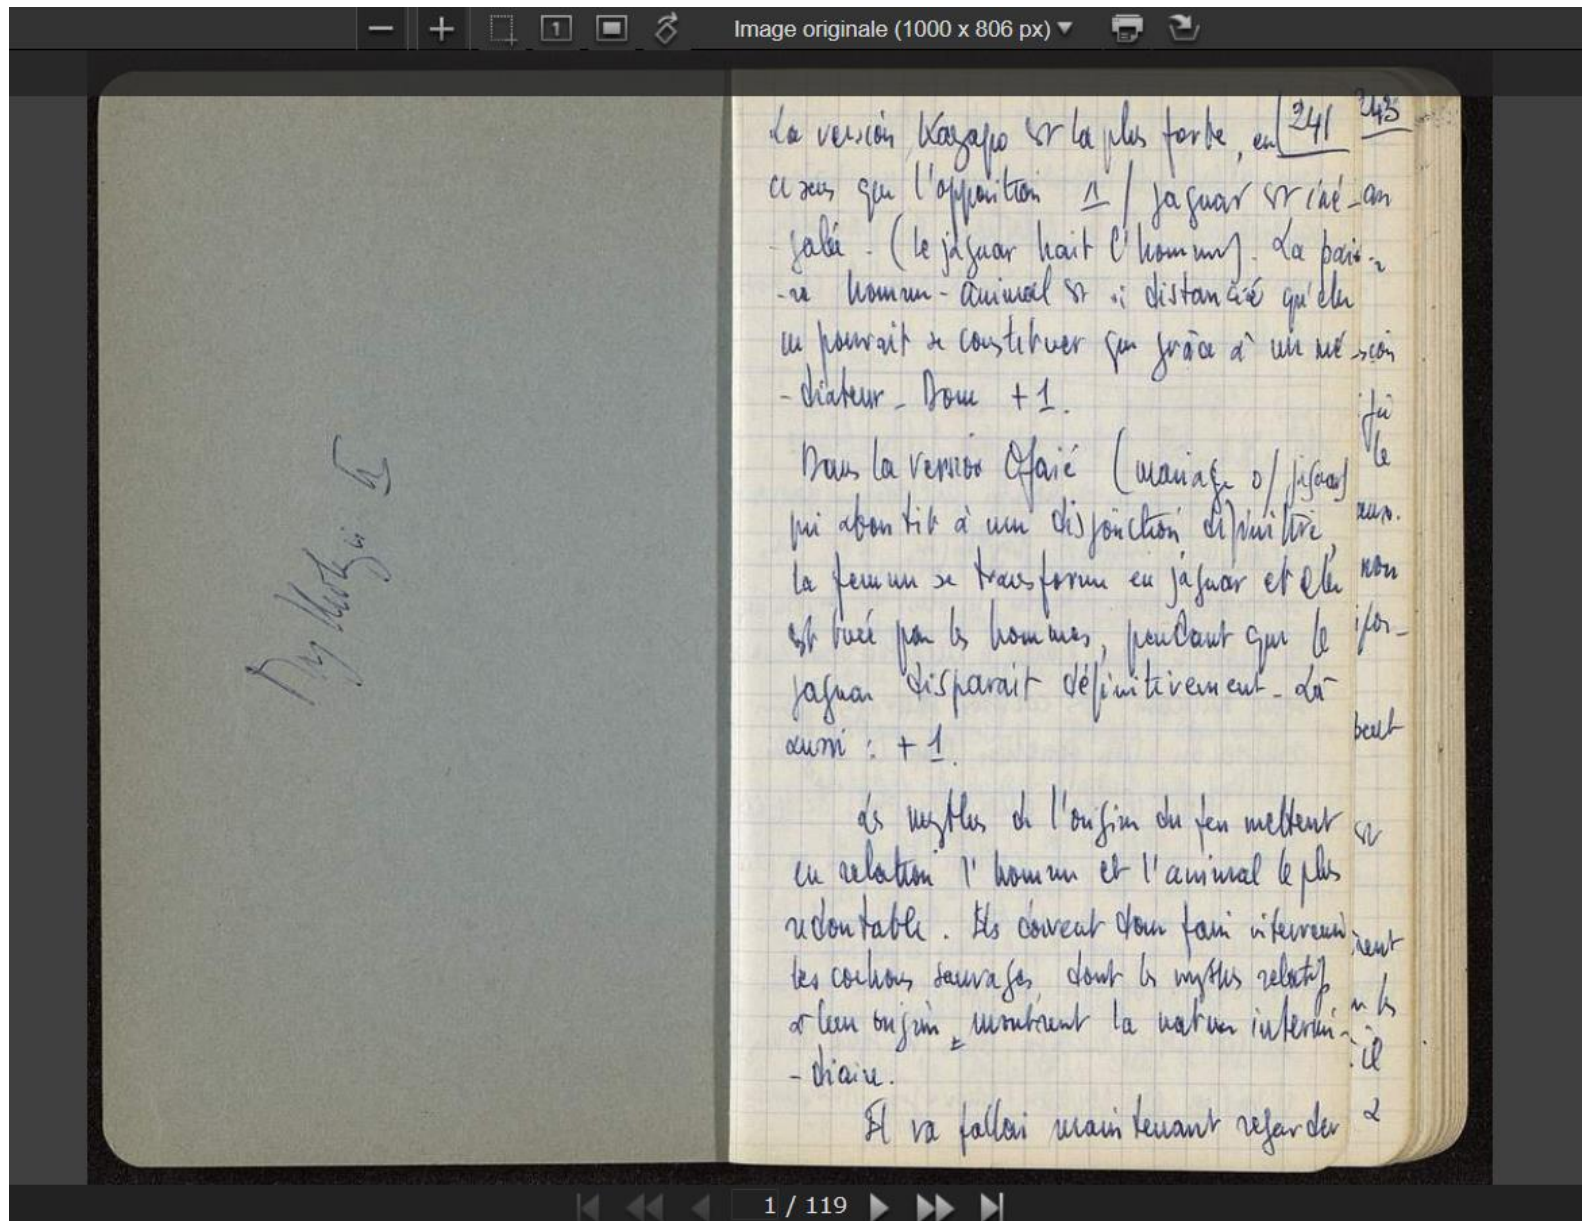 Image originale (1000 x 806 px)
Mythologie
241
243
La version Kayapo est la plus forte, en
ce sens que l'opposition 1 / jaguar est iné-
-galée. (le jaguar hait l'homme). La pai-
-re homme-animal est si distanciée qu'elle
ne pourrait se constituer que grâce à un mé
-diateur. Donc + 1.
Dans la version Ofaié (mariage o / jaguar)
qui aboutit à une disjonction définitive,
la femme se transforme en jaguar et elle
est tuée par les hommes, pendant que le
jaguar disparait définitivement. Là
aussi : + 1.
Les mythes de l'origine du feu mettent
en relation l'homme et l'animal le plus
redoutable. Ils doivent donc faire intervenir
les cochons sauvages, dont les mythes relatifs
à leur origine montrent la nature intermé-
-diaire.
Il va falloir maintenant regarder
an
le
non
peut
est
il
1 / 119